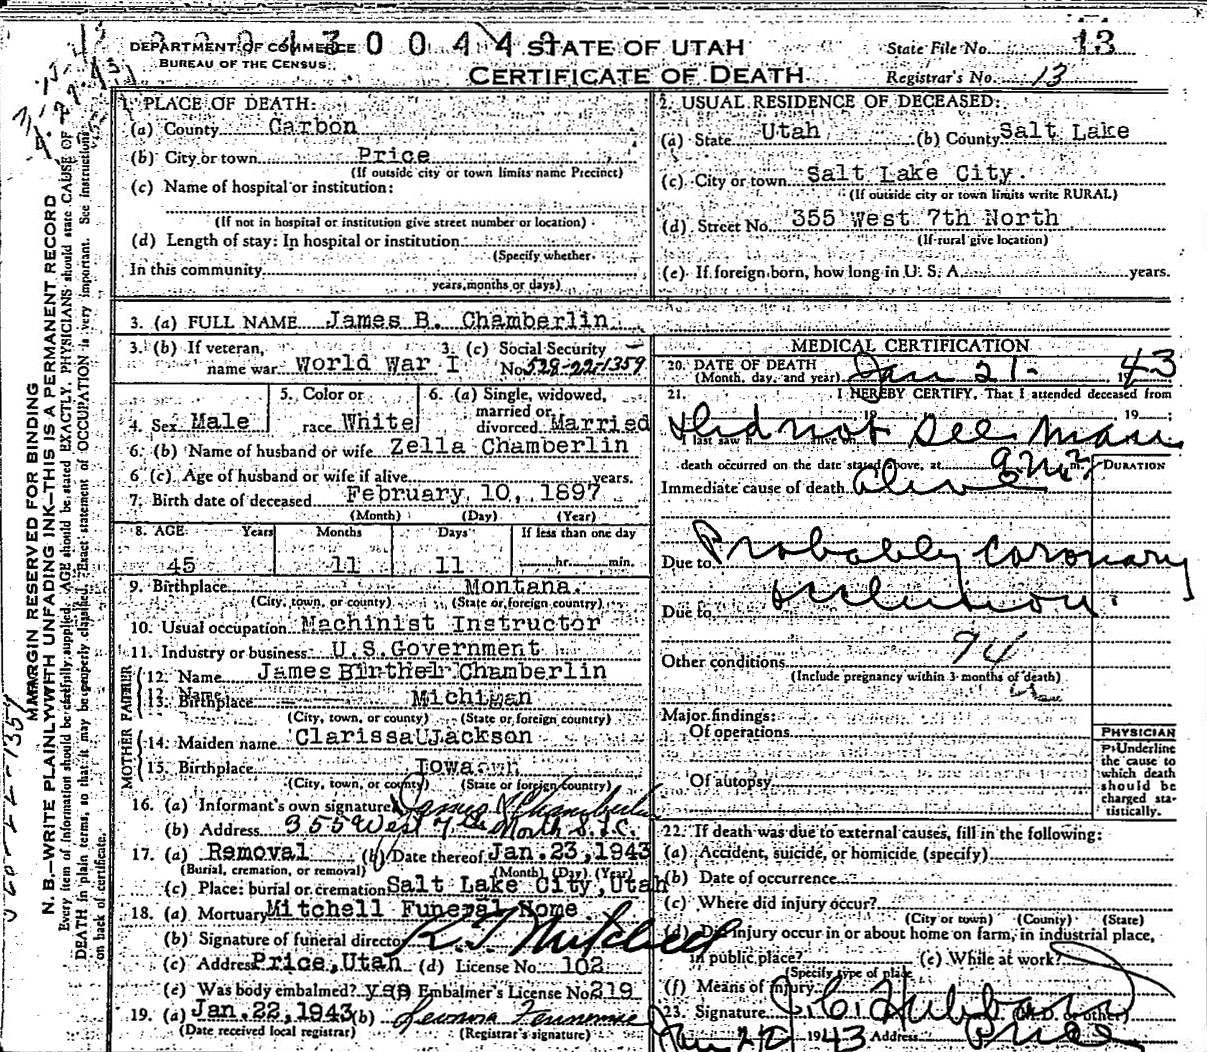 DEPARTMENT OF COMMERCE
BUREAU OF THE CENSUS
STATE OF UTAH
CERTIFICATE OF DEATH
State File No. 13
Registrar's No. 13
MARGIN RESERVED FOR BINDING
N. B.—WRITE PLAINLY WITH UNFADING INK—THIS IS A PERMANENT RECORD
Every item of information should be carefully supplied. AGE should be stated EXACTLY. PHYSICIANS should state CAUSE OF
DEATH in plain terms, so that it may be properly classified. Exact statement of OCCUPATION is very important. See instructions
on back of certificate.
1. PLACE OF DEATH:
(a) County Carbon
(b) City or town Price
(If outside city or town limits name Precinct)
(c) Name of hospital or institution:
(If not in hospital or institution give street number or location)
(d) Length of stay: In hospital or institution
(Specify whether
In this community
years, months or days)
2. USUAL RESIDENCE OF DECEASED:
(a) State Utah (b) County Salt Lake
(c) City or town Salt Lake City.
(If outside city or town limits write RURAL)
(d) Street No. 355 West 7th North
(If rural give location)
(e) If foreign born, how long in U. S. A. years.
3. (a) FULL NAME James B. Chamberlin
3. (b) If veteran, name war World War I
3. (c) Social Security No. 528-22-1359
4. Sex Male
5. Color or race White
6. (a) Single, widowed, married or divorced Married
6. (b) Name of husband or wife Zella Chamberlin
6 (c). Age of husband or wife if alive years.
7. Birth date of deceased February 10, 1897
(Month) (Day) (Year)
8. AGE Years Months Days If less than one day
45 11 11 hr. min.
9. Birthplace Montana.
(City, town, or county) (State or foreign country)
10. Usual occupation Machinist Instructor
11. Industry or business U.S.Government
FATHER
12. Name James Birthel Chamberlin
13. Birthplace Michigan
(City, town, or county) (State or foreign country)
MOTHER
14. Maiden name Clarissa Jackson
15. Birthplace Iowa
(City, town, or county) (State or foreign country)
16. (a) Informant's own signature James Chamberlin
(b) Address 355 West 7th North S.L.C.
17. (a) Removal (b) Date thereof Jan.23,1943
(Burial, cremation, or removal) (Month) (Day) (Year)
(c) Place: burial or cremation Salt Lake City, Utah
18. (a) Mortuary Mitchell Funeral Home
(b) Signature of funeral director Mitchell
(c) Address Price, Utah (d) License No. 102
(e) Was body embalmed? yes Embalmer's License No. 219
19. (a) Jan.22,1943 (b)
(Date received local registrar) (Registrar's signature)
MEDICAL CERTIFICATION
20. DATE OF DEATH
(Month, day, and year) Jan 21. 1943
21. I HEREBY CERTIFY, That I attended deceased from
19 19 ;
Did not see man
last saw h alive on
death occurred on the date stated above, at m.
DURATION
Immediate cause of death alive
Due to Probably coronary
Due to occlusion.
94
Other conditions
(Include pregnancy within 3 months of death)
Major findings:
Of operations
Of autopsy
PHYSICIAN
Underline
the cause to
which death
should be
charged sta-
tistically.
22. If death was due to external causes, fill in the following:
(a) Accident, suicide, or homicide (specify)
(b) Date of occurrence
(c) Where did injury occur?
(City or town) (County) (State)
(d) Did injury occur in or about home on farm, in industrial place,
in public place? (e) While at work?
(Specify type of place
(f) Means of injury
23. Signature J. C. Hubbard
Jan 22 1943 Address Price